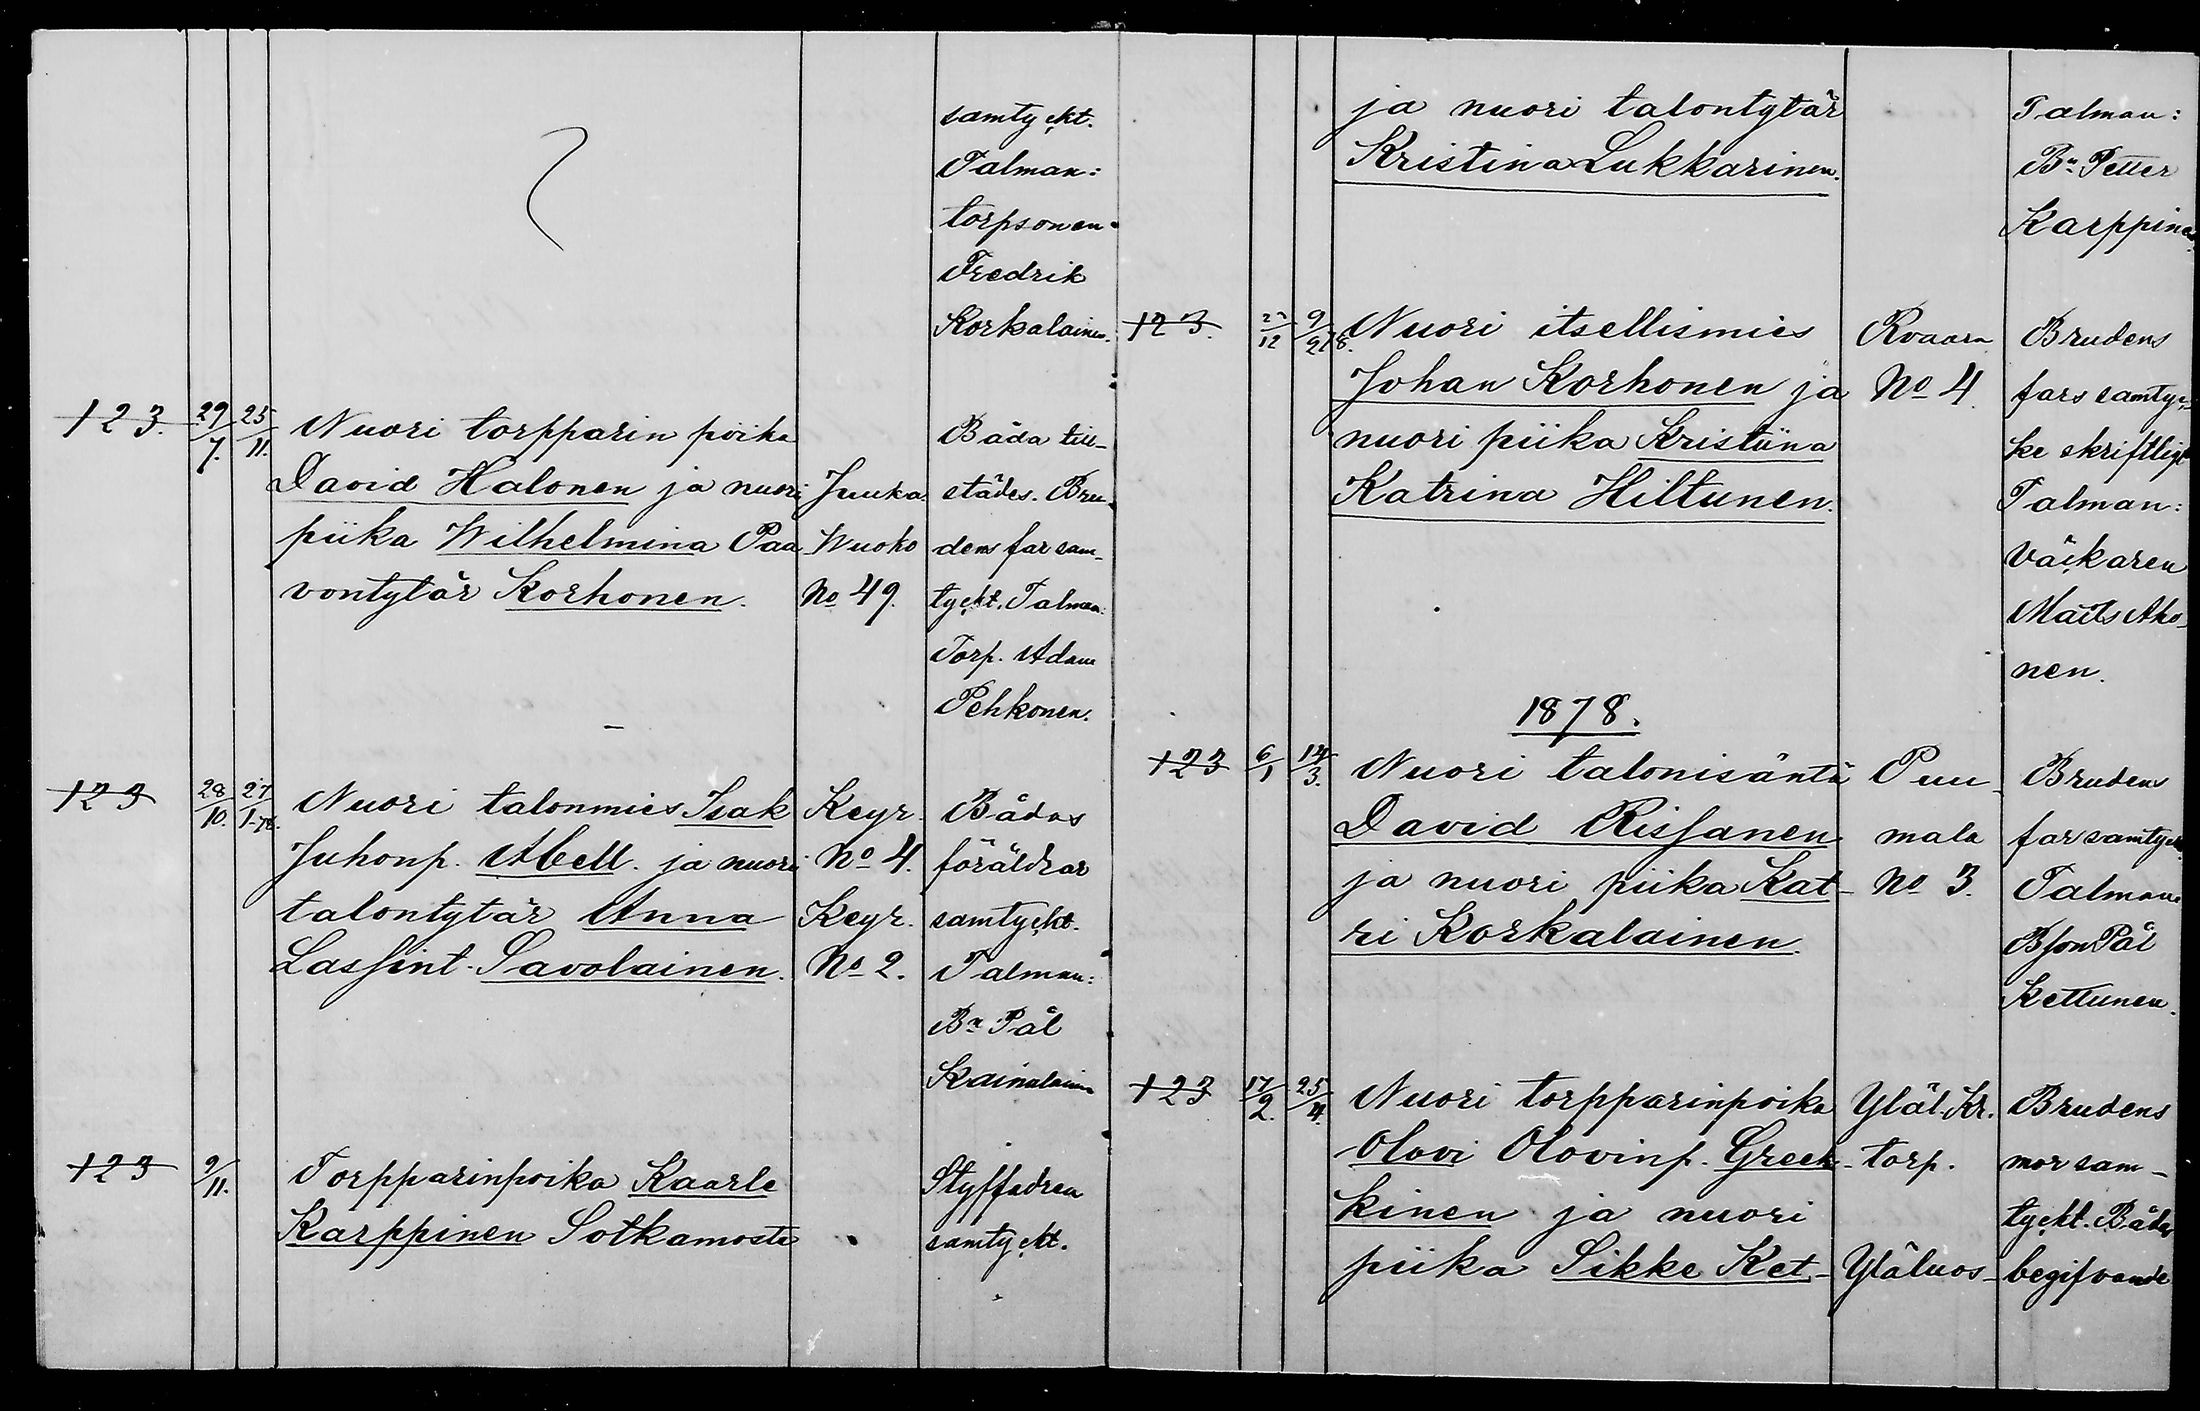 samtyckt.
Talman:
torpsonen
Fredrik
Korkalainen.
123. 29/7. 25/11. Nuori torpparin poika Båda till-
David Halonen ja nuori Juuka städes. Bru-
piika Wilhelmina Paa Wuoko dens far sam-
vontytär Korhonen. No 49. tyckt. Talman:
Torp. Adam
Pehkonen.
123 28/10. 27/1-78. Nuori talonmies Isak Keyr. Bådas
Juhonp. Abell. ja nuori No 4. föräldrar
talontytär Anna Keyr. samtyckt.
Lassint. Savolainen. No 2. Talman:
Bn Pål
Kainulainen
123 9/11. Torpparinpoika Kaarle Styffadren
Karppinen Sotkamosta samtyckt.
ja nuori talontytär Talman:
Kristina Lukkarinen. Bn Petter
Karppinen.
123. 12 9/2 78. Nuori itsellismies Kvaara Brudens
Johan Korhonen ja No 4. fars samtyc-
nuori piika Kristiina ke skriftligt
Katrina Hiltunen. Talman:
Väckaren
Matts Aho-
nen.
1878.
123 6/1 14/3. Nuori talonisäntä Puu- Brudens
David Rissanen mala far samtyckt.
ja nuori piika Kat- No 3. Talman
ri Korkalainen. Bson Pål
Kettunen.
123 17/2. 25/4. Nuori torpparinpoika Yläl. Kr. Brudens
Olovi Olovinp. Greek- torp. mor sam-
kinen ja nuori tyckt. Båda
piika Sikke Ket- Yläluos- begifvande